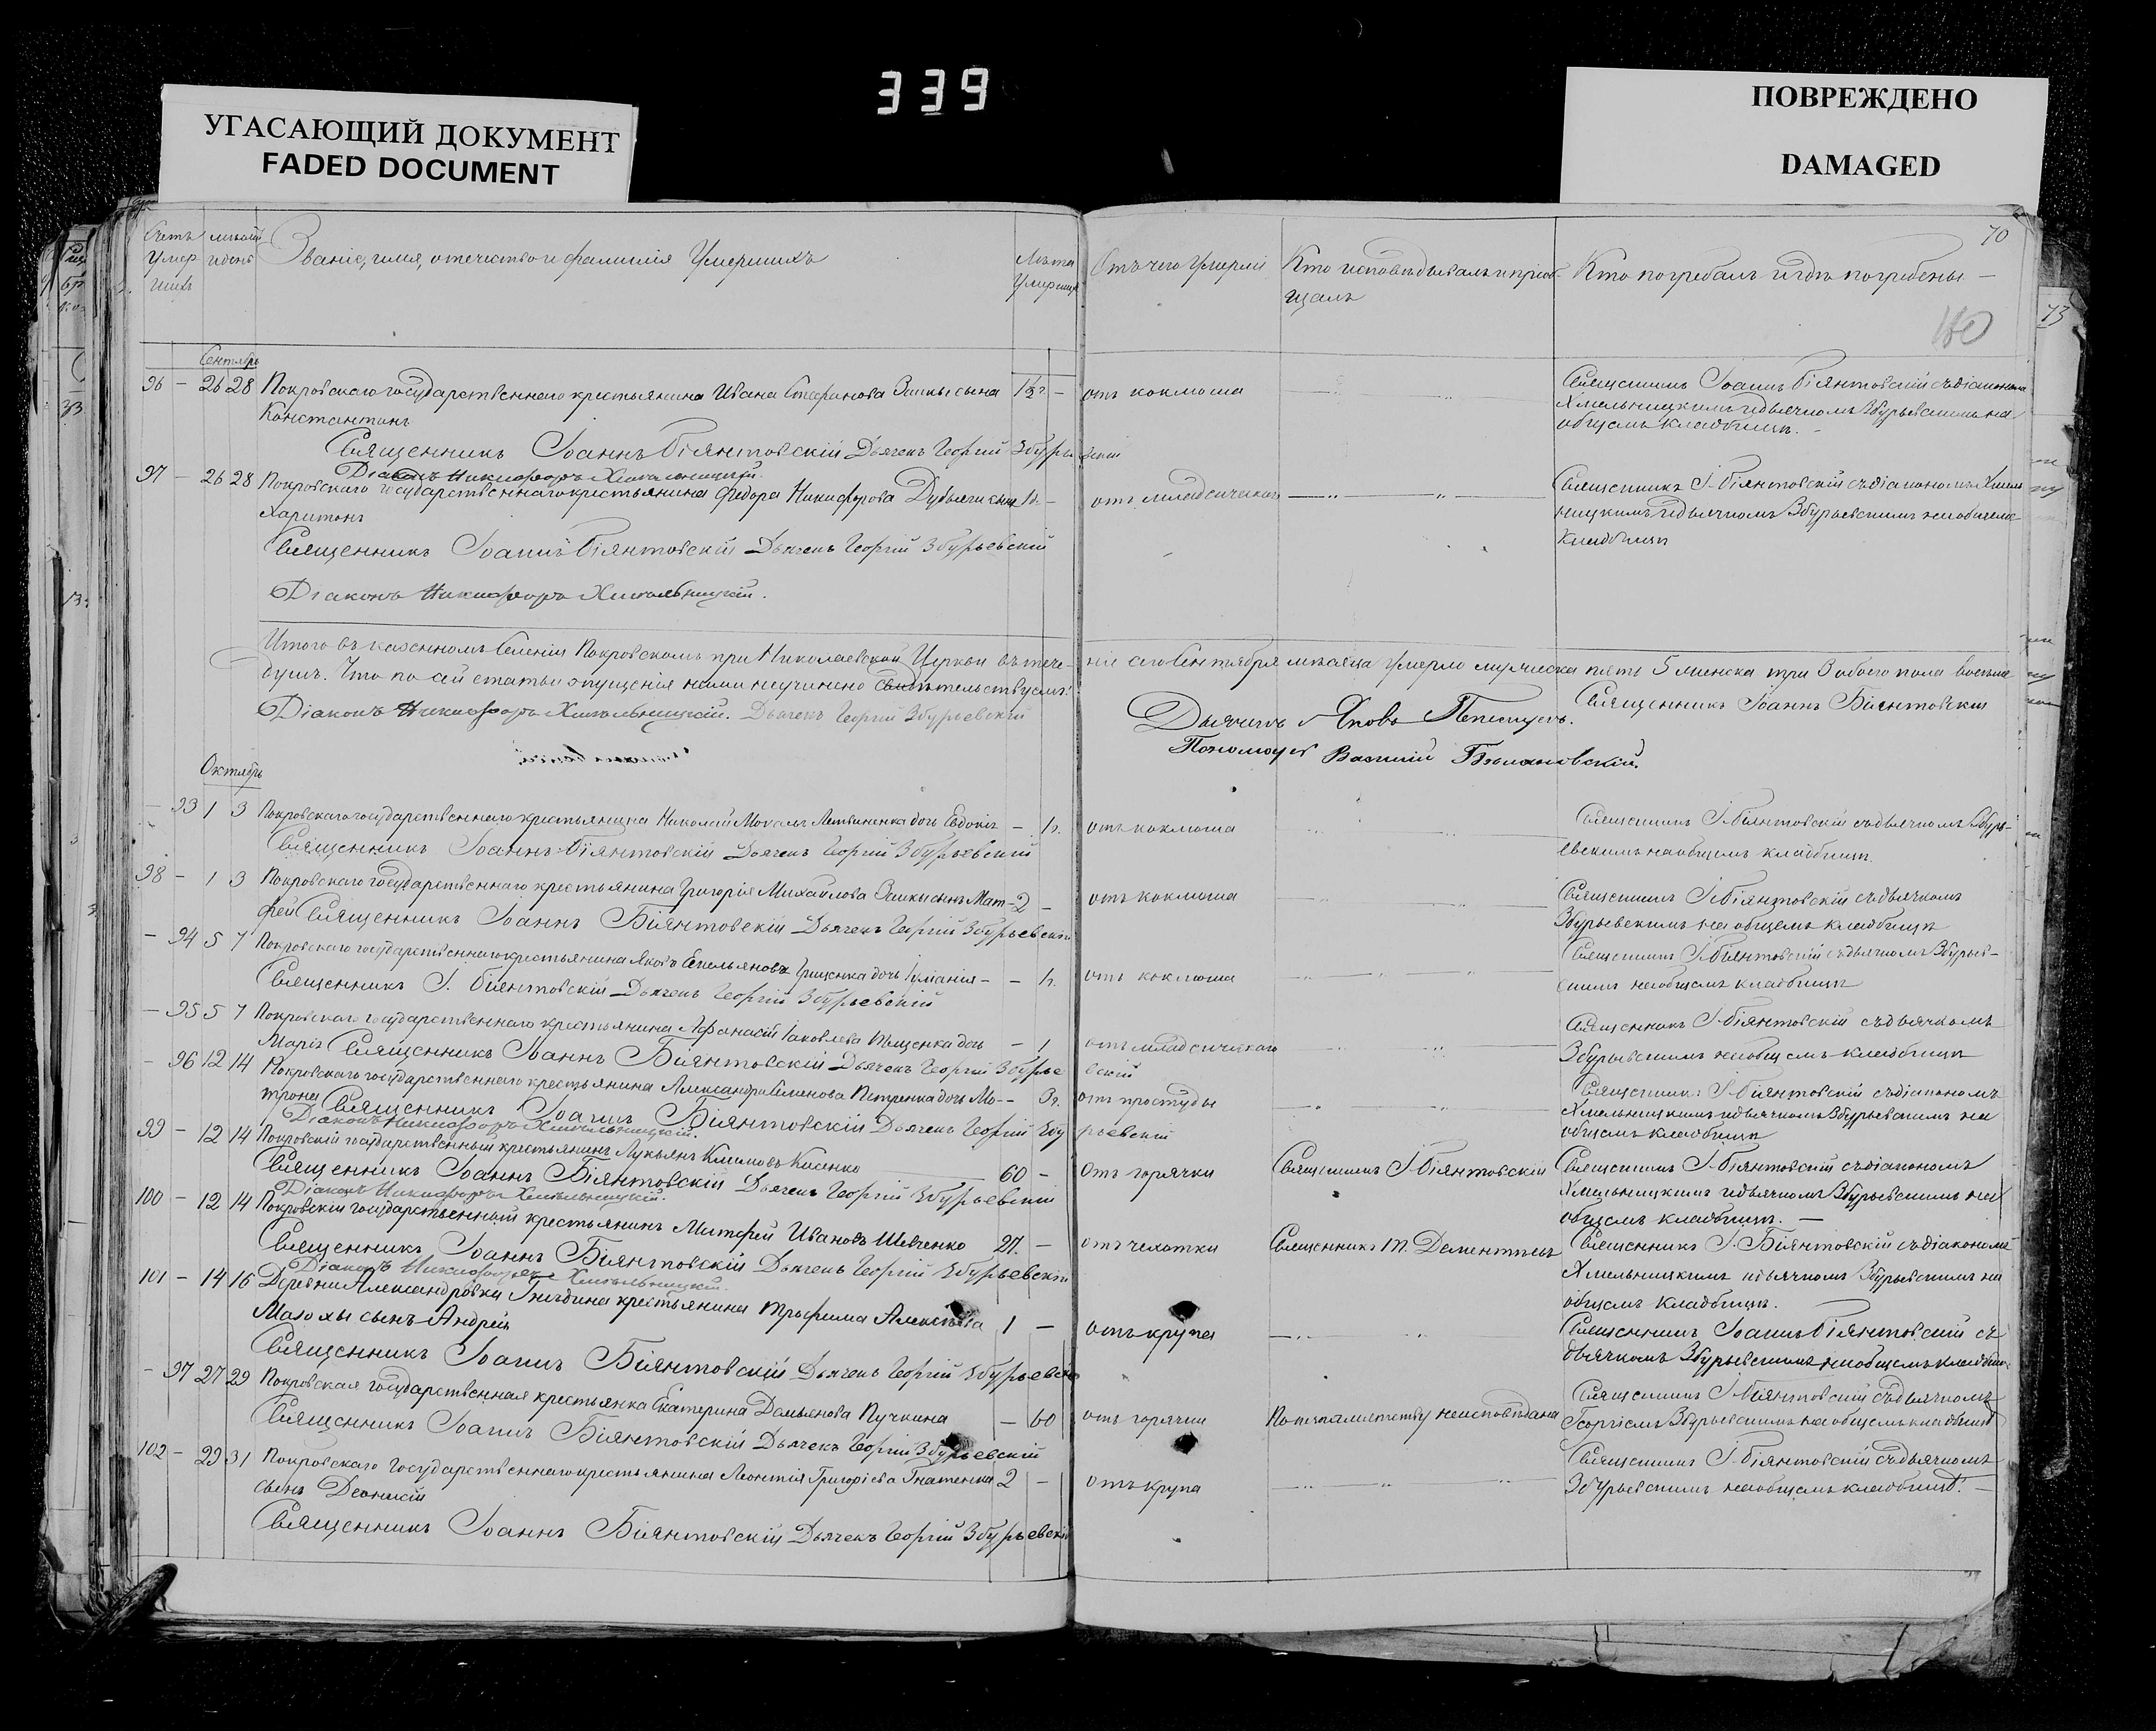 339
УГАСАЮЩИЙ ДОКУМЕНТ
FADED DOCUMENT
ПОВРЕЖДЕНО
DAMAGED
70
73
Счетъ умершихъ
мѣсяцъ и день
Званіе, имя, отечество и фамилія Умершихъ
Лѣта Умершихъ
Отъ чего Умерли
Кто исповѣдывалъ и пріобщалъ
Кто погребалъ и гдѣ погребены
Сентябрь
96 — 26 28 Покровскаго государственнаго крестьянина Ивана Стефанова сына 1½ г. — отъ коклюша
Константинъ
Священникъ Іоаннъ Біянтовскій съ діакономъ
Хмельницкимъ и дьячкомъ Збурьевскимъ на
общемъ кладбищѣ.
Священникъ Іоаннъ Біянтовскій Дьячекъ Георгій Збурьевскій
Діаконъ Никифоръ Хмельницкій.
97 — 26 28 Покровскаго государственнаго крестьянина Федора Никифорова сынъ 1 г. — отъ младенческой
Харитонъ
Священникъ І. Біянтовскій съ діакономъ Хмель
ницкимъ и дьячкомъ Збурьевскимъ на общемъ
кладбищѣ
Священникъ Іоаннъ Біянтовскій Дьячекъ Георгій Збурьевскій
Діаконъ Никифоръ Хмельницкій.
Итого въ казенномъ селеніи Покровскомъ при Николаевской Церкви въ тече-ніе сего Сентября мѣсяца умерло мужеска пять 5 женска три 3 обоего пола восемь
душъ. Что по сей статьи опущенія нами неучинено свидѣтельствуемъ:
Священникъ Іоаннъ Біянтовскій
Діаконъ Никифоръ Хмельницкій. Дьячекъ Георгій Збурьевскій
Дьячекъ Яковъ
Пономарь Василій
Октябрь
— 93 1 3 Покровскаго государственнаго крестьянина Николай Литвиненка дочь Евдокія — 1 г. отъ коклюша
Священникъ І. Біянтовскій съ дьячкомъ Збурь-
евскимъ на общемъ кладбищѣ.
Священникъ Іоаннъ Біянтовскій Дьячекъ Георгій Збурьевскій
98 — 1 3 Покровскаго государственнаго крестьянина Григорія Михайлова сынъ Мат- 2 — отъ коклюша
фей Священникъ Іоаннъ Біянтовскій Дьячекъ Георгій Збурьевскій
Священникъ І. Біянтовскій съ дьячкомъ
Збурьевскимъ на общемъ кладбищѣ
— 94 5 7 Покровскаго государственнаго крестьянина Яковъ Емельяновъ Грищенка дочь — 1 г. отъ коклюша
Священникъ І. Біянтовскій съ дьячкомъ Збурьев-
скимъ на общемъ кладбищѣ
Священникъ І. Біянтовскій Дьячекъ Георгій Збурьевскій
— 95 5 7 Покровскаго государственнаго крестьянина Афанасій Іаковлева дочь — 1 отъ младенческаго
Марія Священникъ Іоаннъ Біянтовскій Дьячекъ Георгій Збурьевскій
Священникъ І. Біянтовскій съ дьячкомъ
Збурьевскимъ на общемъ кладбищѣ
— 96 12 14 Покровскаго государственнаго крестьянина Александра Семенова Петренка дочь Ма- — 3 г. отъ простуды
трона Священникъ Іоаннъ Біянтовскій Дьячекъ Георгій Збурьевскій
Діаконъ Никифоръ Хмельницкій.
Священникъ І. Біянтовскій съ діакономъ
Хмельницкимъ и дьячкомъ Збурьевскимъ на
общемъ кладбищѣ
99 — 12 14 Покровскій государственный крестьянинъ Лукьянъ Климовъ 60 — Отъ горячки Священникъ І. Біянтовскій
Священникъ Іоаннъ Біянтовскій Дьячекъ Георгій Збурьевскій
Діаконъ Никифоръ Хмельницкій.
Священникъ І. Біянтовскій съ діакономъ
Хмельницкимъ и дьячкомъ Збурьевскимъ на
общемъ кладбищѣ. —
100 — 12 14 Покровскій государственный крестьянинъ Митофей Ивановъ Шевченко 27. — отъ чехотки Священникъ Дементьевъ
Священникъ Іоаннъ Біянтовскій Дьячекъ Георгій Збурьевскій
Діаконъ Никифоръ Хмельницкій.
Священникъ І. Біянтовскій съ діакономъ
Хмельницкимъ и дьячкомъ Збурьевскимъ на
общемъ кладбищѣ.
101 — 14 16 Деревни Александровки крестьянина Трофима Алексѣева
сынъ Андрей 1 — отъ крупа
Священникъ Іоаннъ Біянтовскій съ
дьячкомъ Збурьевскимъ на общемъ кладбищѣ
Священникъ Іоаннъ Біянтовскій Дьячекъ Георгій Збурьевскій
— 97 27 29 Покровская государственная крестьянка Екатерина Демьянова Пучкина — 60 отъ горячки По безпамятству неисповѣдана
Священникъ І. Біянтовскій съ дьячкомъ
Георгіемъ Збурьевскимъ на общемъ кладбищѣ
Священникъ Іоаннъ Біянтовскій Дьячекъ Георгій Збурьевскій
102 — 29 31 Покровскаго государственнаго крестьянина Леонтія Григоріева Гнатенка 2 — отъ крупа
сынъ Діонисій
Священникъ І. Біянтовскій съ дьячкомъ
Збурьевскимъ на общемъ кладбищѣ. —
Священникъ Іоаннъ Біянтовскій Дьячекъ Георгій Збурьевскій